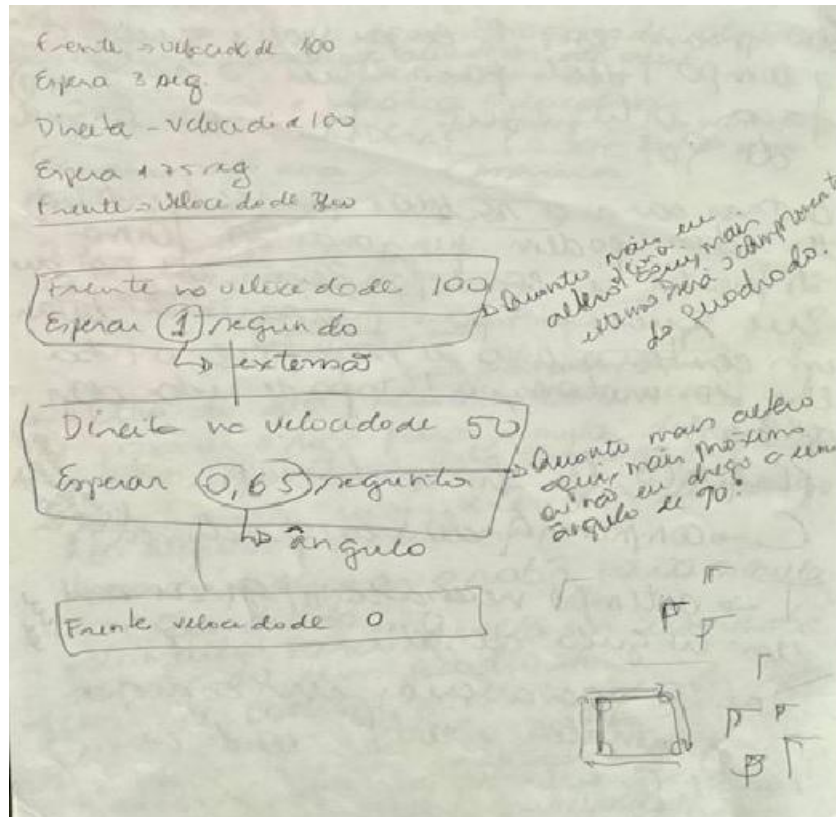 Frente → velocidade 100
Espera 3 seg.
Direita - velocidade 100
Espera 1.75 seg
Frente → velocidade
Frente na velocidade 100
Esperar 1 segundo
↳ extensão
→ Quanto mais eu
altero aqui, mais
extenso será o comprimento
do quadrado.
Direita na velocidade 50
Esperar 0,65 segundos
↳ ângulo
→ Quanto mais altero
aqui, mais próximo
ou não eu chego a um
ângulo de 90°.
Frente velocidade 0